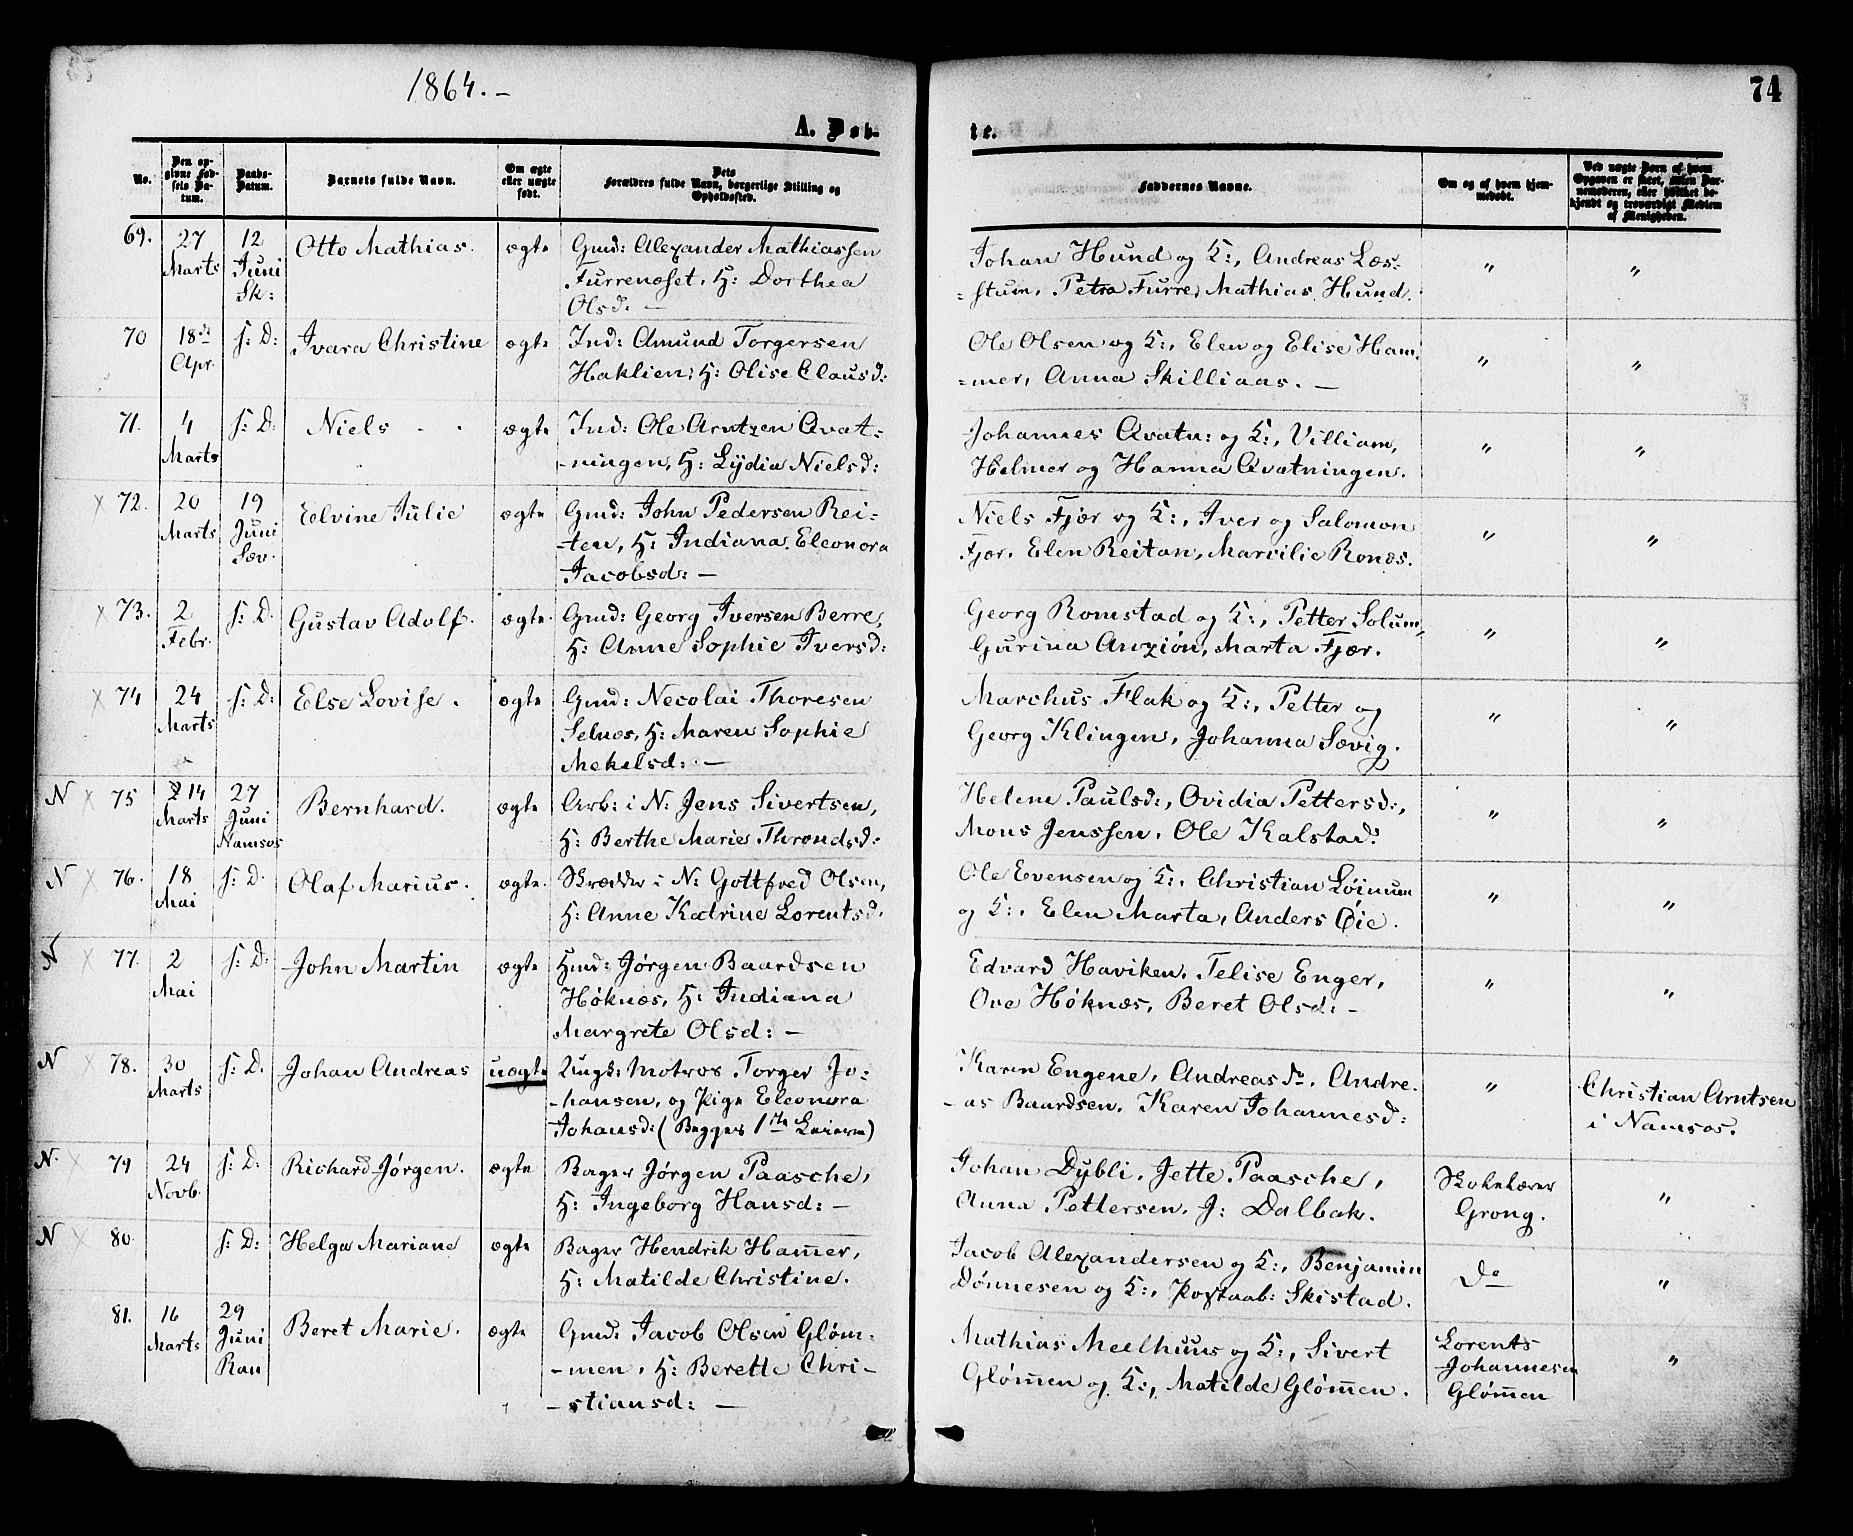 1864.-
74
A. Døb-
te.
No.
Den op-
givne Fød-
sels Da-
tum.
Daabs-
Datum.
Barnets fulde Navn.
Om ægte
eller uægte
født.
Dets
Forældres fulde Navn, borgerlige Stilling og
Opholdssted.
Faddernes Navne.
Om og af hvem hjem-
medøbt.
Ved uægte Børn af hvem
Opgaven er skeet, enten Bar-
nemoderen, eller hvilket be-
kjendt og troværdigt Medlem
af Menigheden.
69.
27
Marts
12
Juni
Sk:
Otto Mathias.
ægte
Gmd: Alexander Mathiassen
Furrenæset, H: Dorthea
Olsd: —
Johan Hund og K:, Andreas Læs-
-stum, Petra Furre, Mathias Hund.
"
"
70
18de
Apr.
s: D:
Ivara Christine
ægte
Ind: Amund Torgersen
Haklien, H: Olise Clausd:
Ole Olsen og K:, Elen og Elise Ham-
-mer, Anna Skilliaas. —
"
"
71.
4
Marts
s: D.
Niels
ægte
Ind: Ole Arntzen Qvat-
-ningen, H: Lydia Nielsd:
Johannes Qvatn: og K:, Villiam,
Helmer og Hanna Qvatningen.
"
"
x 72.
20
Marts
19
Juni
Sæv.
Edvine Julie
ægte
Gmd: John Pedersen Rei-
-ten, H: Indiana Eleonora
Jacobsd: —
Niels Fjær og K:, Iver og Salomon
Fjær, Elen Reitan, Marsilie Ronæs.
"
"
x 73.
2
Febr.
s: D.
Gustav Adolf.
ægte.
Gmd: Georg Iversen Berre,
H: Anne Sophie Iversd:
Georg Romstad og K:, Petter Solum,
Gurina Anzión, Marta Fjær.
"
"
x 74
24
Marts
s: D:
Else Lovise.
ægte
Gmd: Necolai Thoresen
Selnæs, H: Maren Sophie
Mekelsd: —
Marchus Flak og K:, Petter og
Georg Klingen, Johanna Sævig.
"
"
N x 75
14
Marts
27
Juni
Namsos
Bernhard.
ægte
Arb: i N: Jens Sivertsen,
H: Berthe Marie Throndsd:
Helene Paulsd:, Ovidia Pettersd:,
Mons Jenssen, Ole Kalstad:
"
"
N x 76.
18
Mai
s: D.
Olaf Marius.
ægte.
Skrædder i N: Gottfred Olsen,
H: Anne Katrine Lorentsd.
Ole Evensen og K:, Christian Løinum
og K:, Elen Marta, Anders Øie.
"
"
N x 77.
2
Mai
s: D:
John Martin
ægte
Hmd: Jørgen Baardsen
Høknæs, H: Indiana
Margrete Olsd: —
Edvard Haviken, Telise Enger,
Ove Høknæs, Beret Olsd: -
"
"
N x 78.
30
Marts
s: D.
Johan Andreas
uægte
Ungk: Matros Torger Jo-
-hansen, og Pige Eleonora
Johansd: (Begges 1ste Leierm)
Karen Engene, Andreas do, Andre-
-as Baardsen, Karen Johannesd:
"
Christian Arntsen
i Namsos.
N. 79
24
Novb.
s: D.
Richard Jørgen.
ægte
Bager Jørgen Paasche,
H: Ingeborg Hansd: —
Johan Dybli, Jette Paasche,
Anna Pettersen, J: Dalbak.
Skolelærer
Grong.
"
N x 80.
s: D:
Helga Mariane
ægte
Bager Hendrik Ham̅er,
H: Matilde Christine.
Jacob Alexandersen og K:, Benjamin
Dønnesen og K:, Postaab: Skistad.
Do
"
81.
16
Marts
29
Juni
Ran
Beret Marie.
ægte
Gmd: Jacob Olsen Gløm-
-men, H: Berette Chri-
-stiansd: —
Mathias Meelhuus og K:, Sivert
Gløm̅en og K:, Matilde Gløm̅en.
Lorents
Johannesen
Gløm̅en
"